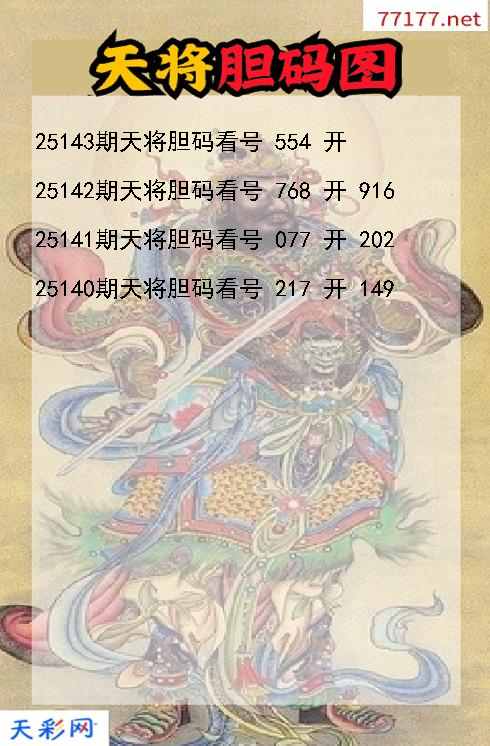 77177.net
天将胆码图
25143期天将胆码看号 554 开
25142期天将胆码看号 768 开 916
25141期天将胆码看号 077 开 202
25140期天将胆码看号 217 开 149
天彩网